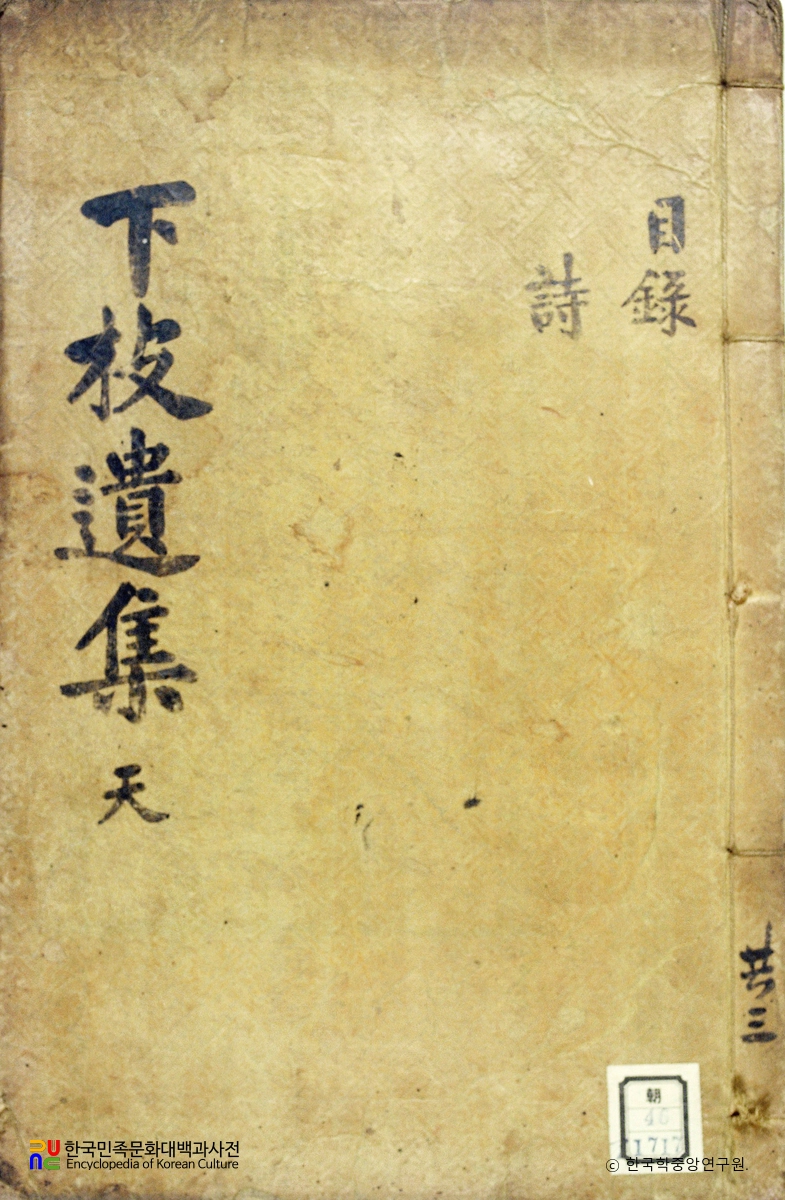 目錄
詩
下枝遺集 天
共三
朝
한국민족문화대백과사전
Encyclopedia of Korean Culture
© 한국학중앙연구원.